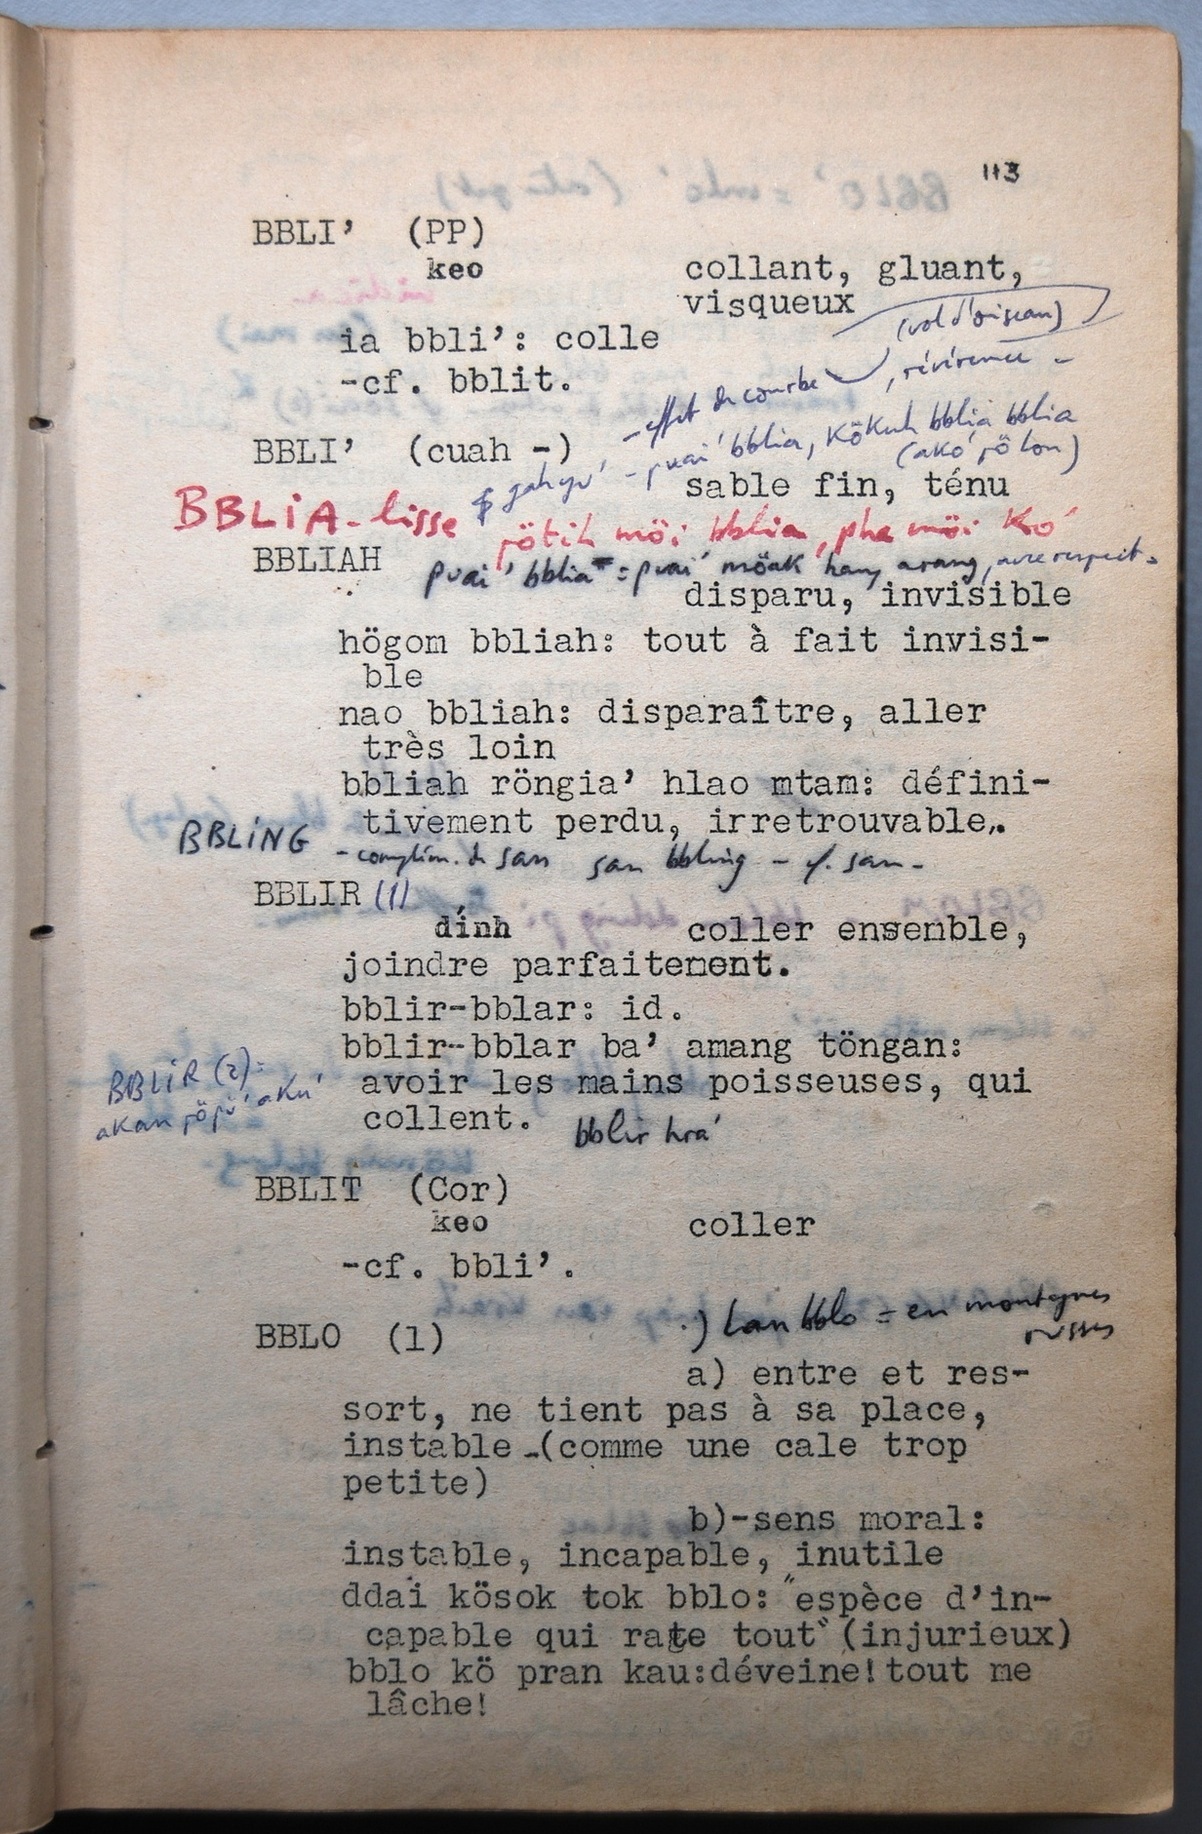 113
BBLI’ (PP)
keo collant, gluant,
visqueux
(vol d'oiseau)
ia bbli’: colle
-cf. bblit.
- effet de courbe, révérence -
- puai' bblia, kökuh bblia bblia
(akó' pö lon)
BBLI’ (cuah -)
sable fin, ténu
BBLIA - lisse pötih möi bblia, pha möi kó'
BBLIAH
puai' bblia = puai' möak hang arang, avec respect.
disparu, invisible
högom bbliah: tout à fait invisi-
ble
nao bbliah: disparaître, aller
très loin
bbliah röngia’ hlao mtam: défini-
tivement perdu, irretrouvable.
BBLING - complém. de san san bbling - cf. san -
BBLIR (1)
dính coller ensemble,
joindre parfaitement.
bblir-bblar: id.
bblir-bblar ba’ amang töngan:
avoir les mains poisseuses, qui
collent. bblir hra'
BBLIR (2):
akan pöpü' akú'
BBLIT (Cor)
keo coller
-cf. bbli’.
.) lan bblo = en montagnes
russes
BBLO (1)
a) entre et res-
sort, ne tient pas à sa place,
instable -(comme une cale trop
petite)
b)-sens moral:
instable, incapable, inutile
ddai kösok tok bblo: "espèce d’in-
capable qui rate tout" (injurieux)
bblo kö pran kau:déveine!tout me
lâche!